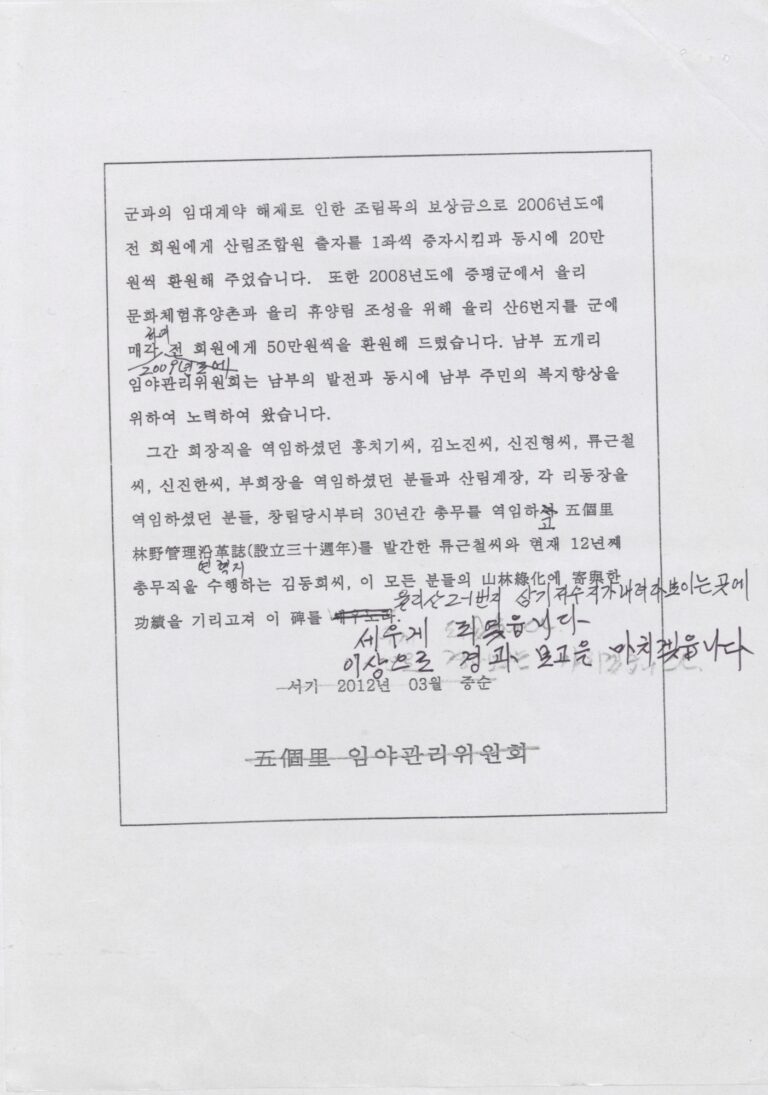 군과의 임대계약 해재로 인한 조림목의 보상금으로 2006년도에
전 회원에게 산림조합원 출자를 1좌씩 증자시킴과 동시에 20만
원씩 환원해 주었습니다. 또한 2008년도에 증평군에서 율리
문화체험휴양촌과 율리 휴양림 조성을 위해 율리 산6번지를 군에
하여
매각 전 회원에게 50만원씩을 환원해 드렸습니다. 남부 五개리
2009년도에
임야관리위원회는 남부의 발전과 동시에 남부 주민의 복지향상을
위하여 노력하여 왔습니다.
그간 회장직을 역임하셨던 홍치기씨, 김노진씨, 신진형씨, 류근철
씨, 신진한씨, 부회장을 역임하셨던 분들과 산림계장, 각 리동장을
역임하셨던 분들, 창림당시부터 30년간 총무를 역임하 五個里
고
林野管理沿革誌(設立三十週年)를 발간한 류근철씨와 현재 12년째
연혁지
총무직을 수행하는 김동회씨, 이 모든 분들의 山林綠化에 寄與한
율리산 2-1번지 삼기저수지가 내려다보이는 곳에
功績을 기리고져 이 碑를 세우노라.
세우게 되었습니다
이상으로 경과 보고을 마치겠습니다
서기 2012년 03월 중순
五個里 임야관리위원회